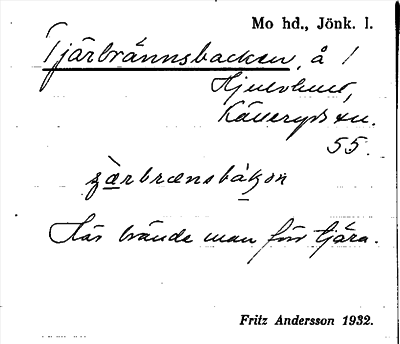 Mo hd., Jönk. l.
Tjärbrännsbacken, å /
Hjulvhult,
Källeryds sn.
55.
Här brände man förr tjära.
Fritz Andersson 1932.